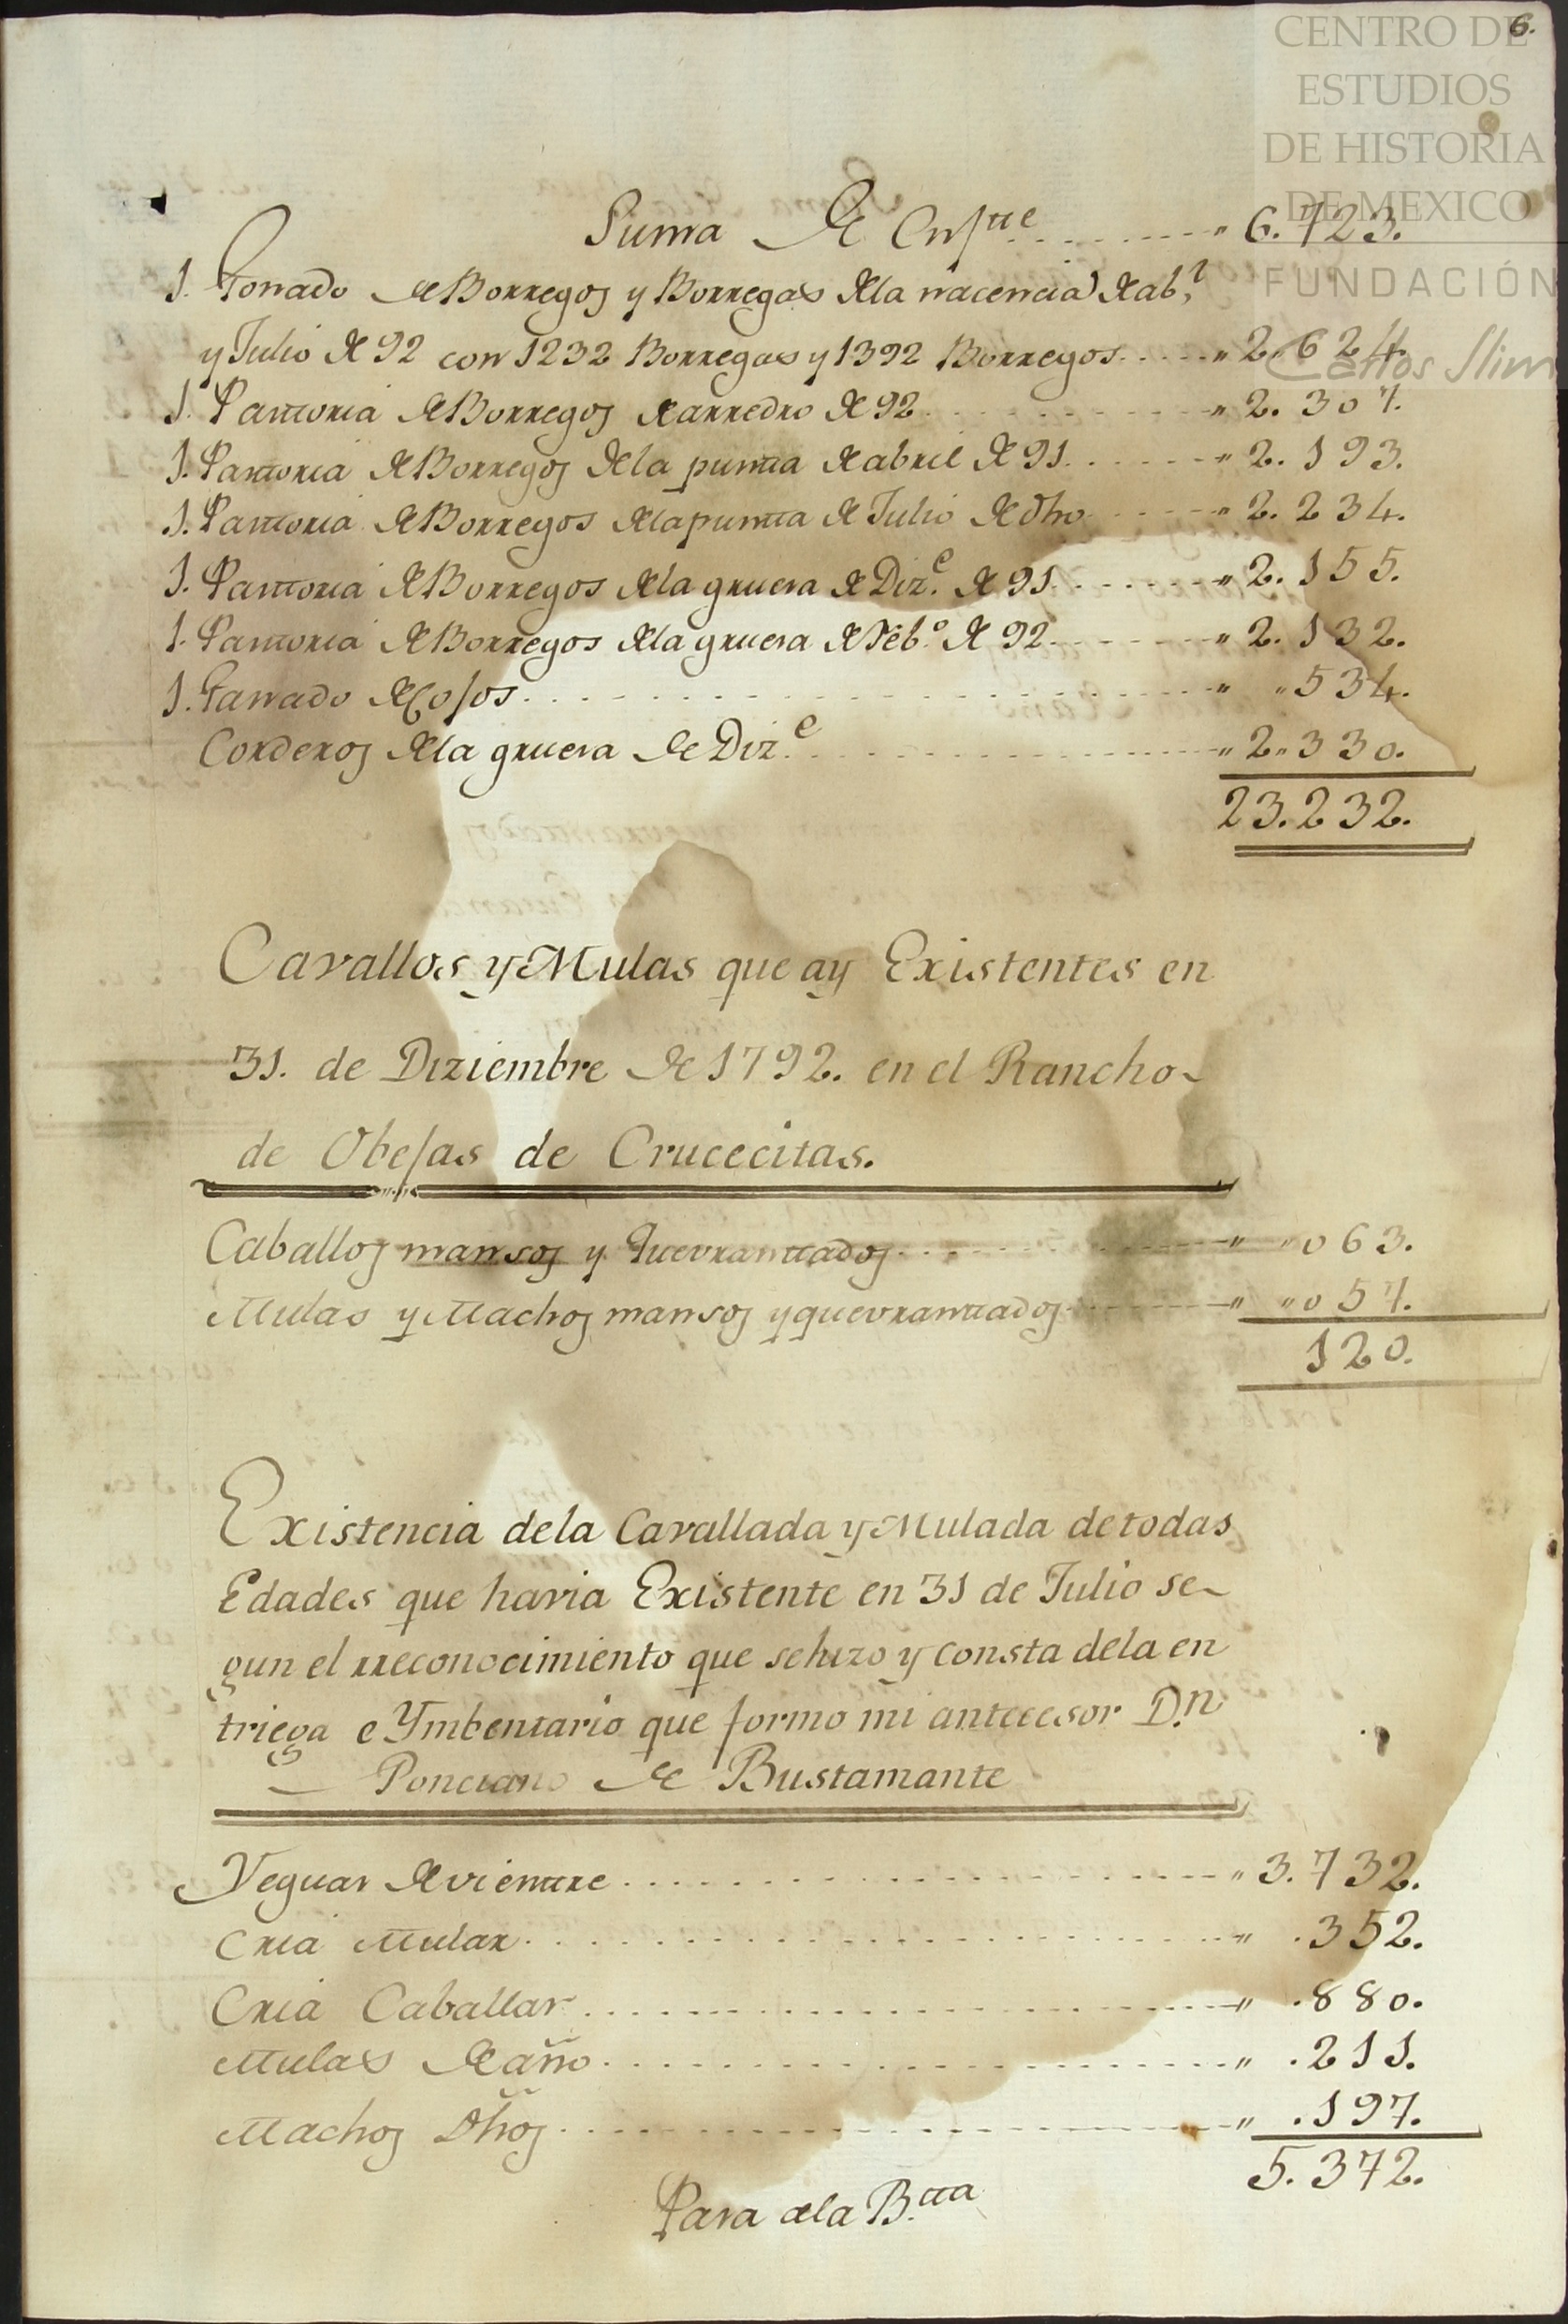 6.
CENTRO DE
ESTUDIOS
DE HISTORIA
DE MEXICO
FUNDACIÓN
Carlos Slim
Suma de Enf.tte " 6.723.
1. Ganado de Borregos y Borregas de la nacencia de ab.l
y Julio de 92 con 1232 Borregas y 1392 Borregos " 2.624.
1. Pastoria de Borregos de arredro de 92 " 2.307.
1. Pastoria de Borregos de la punta de abril de 91 " 2.193.
1. Pastoria de Borregos de la punta de Julio de dho " 2.234.
1. Pastoria de Borregos de la gruesa de Diz.e de 91 " 2.155.
1. Pastoria de Borregos de la gruesa de Feb.o de 92 " 2.132.
1. Ganado de Cojos " " 534.
Corderos de la gruesa de Diz.e " 2.330.
23.232.
Cavallos y Mulas que ay Existentes en
31. de Diziembre de 1792. en el Rancho
de Obejas de Crucecitas.
Caballos mansos y Quevrantados " " 063.
Mulas y Machos mansos y quevrantados " " 057.
120.
Existencia dela Cavallada y Mulada de todas
Edades que havia Existente en 31 de Julio se-
gun el rreconocimiento que sehizo y consta dela en
triega e Ymbentario que formo mi antecesor D.n
Ponciano de Bustamante
Yeguas de vientre " 3.732.
Cria Mular " .352.
Cria Caballar " .880.
Mulas de año " .211.
Machos Dhos " .197.
5.372.
Pasa ala B.tta